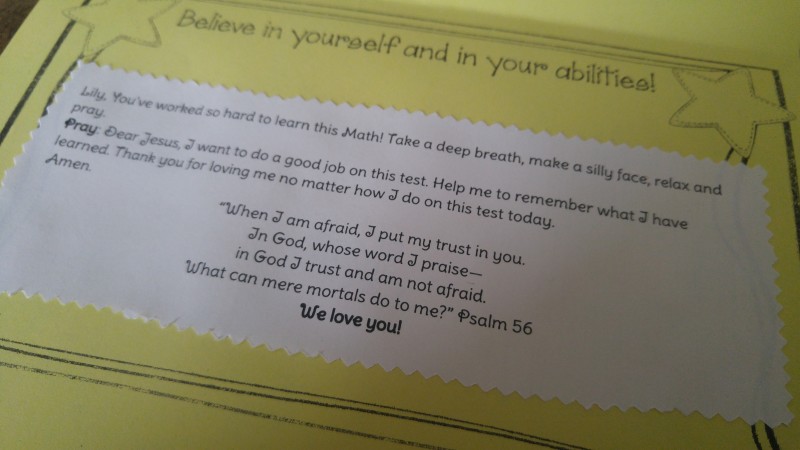 Believe in yourself and in your abilities!
Lily, You've worked so hard to learn this Math! Take a deep breath, make a silly face, relax and
pray.
Pray: Dear Jesus, I want to do a good job on this test. Help me to remember what I have
learned. Thank you for loving me no matter how I do on this test today.
Amen.
"When I am afraid, I put my trust in you.
In God, whose word I praise—
in God I trust and am not afraid.
What can mere mortals do to me?" Psalm 56
We love you!